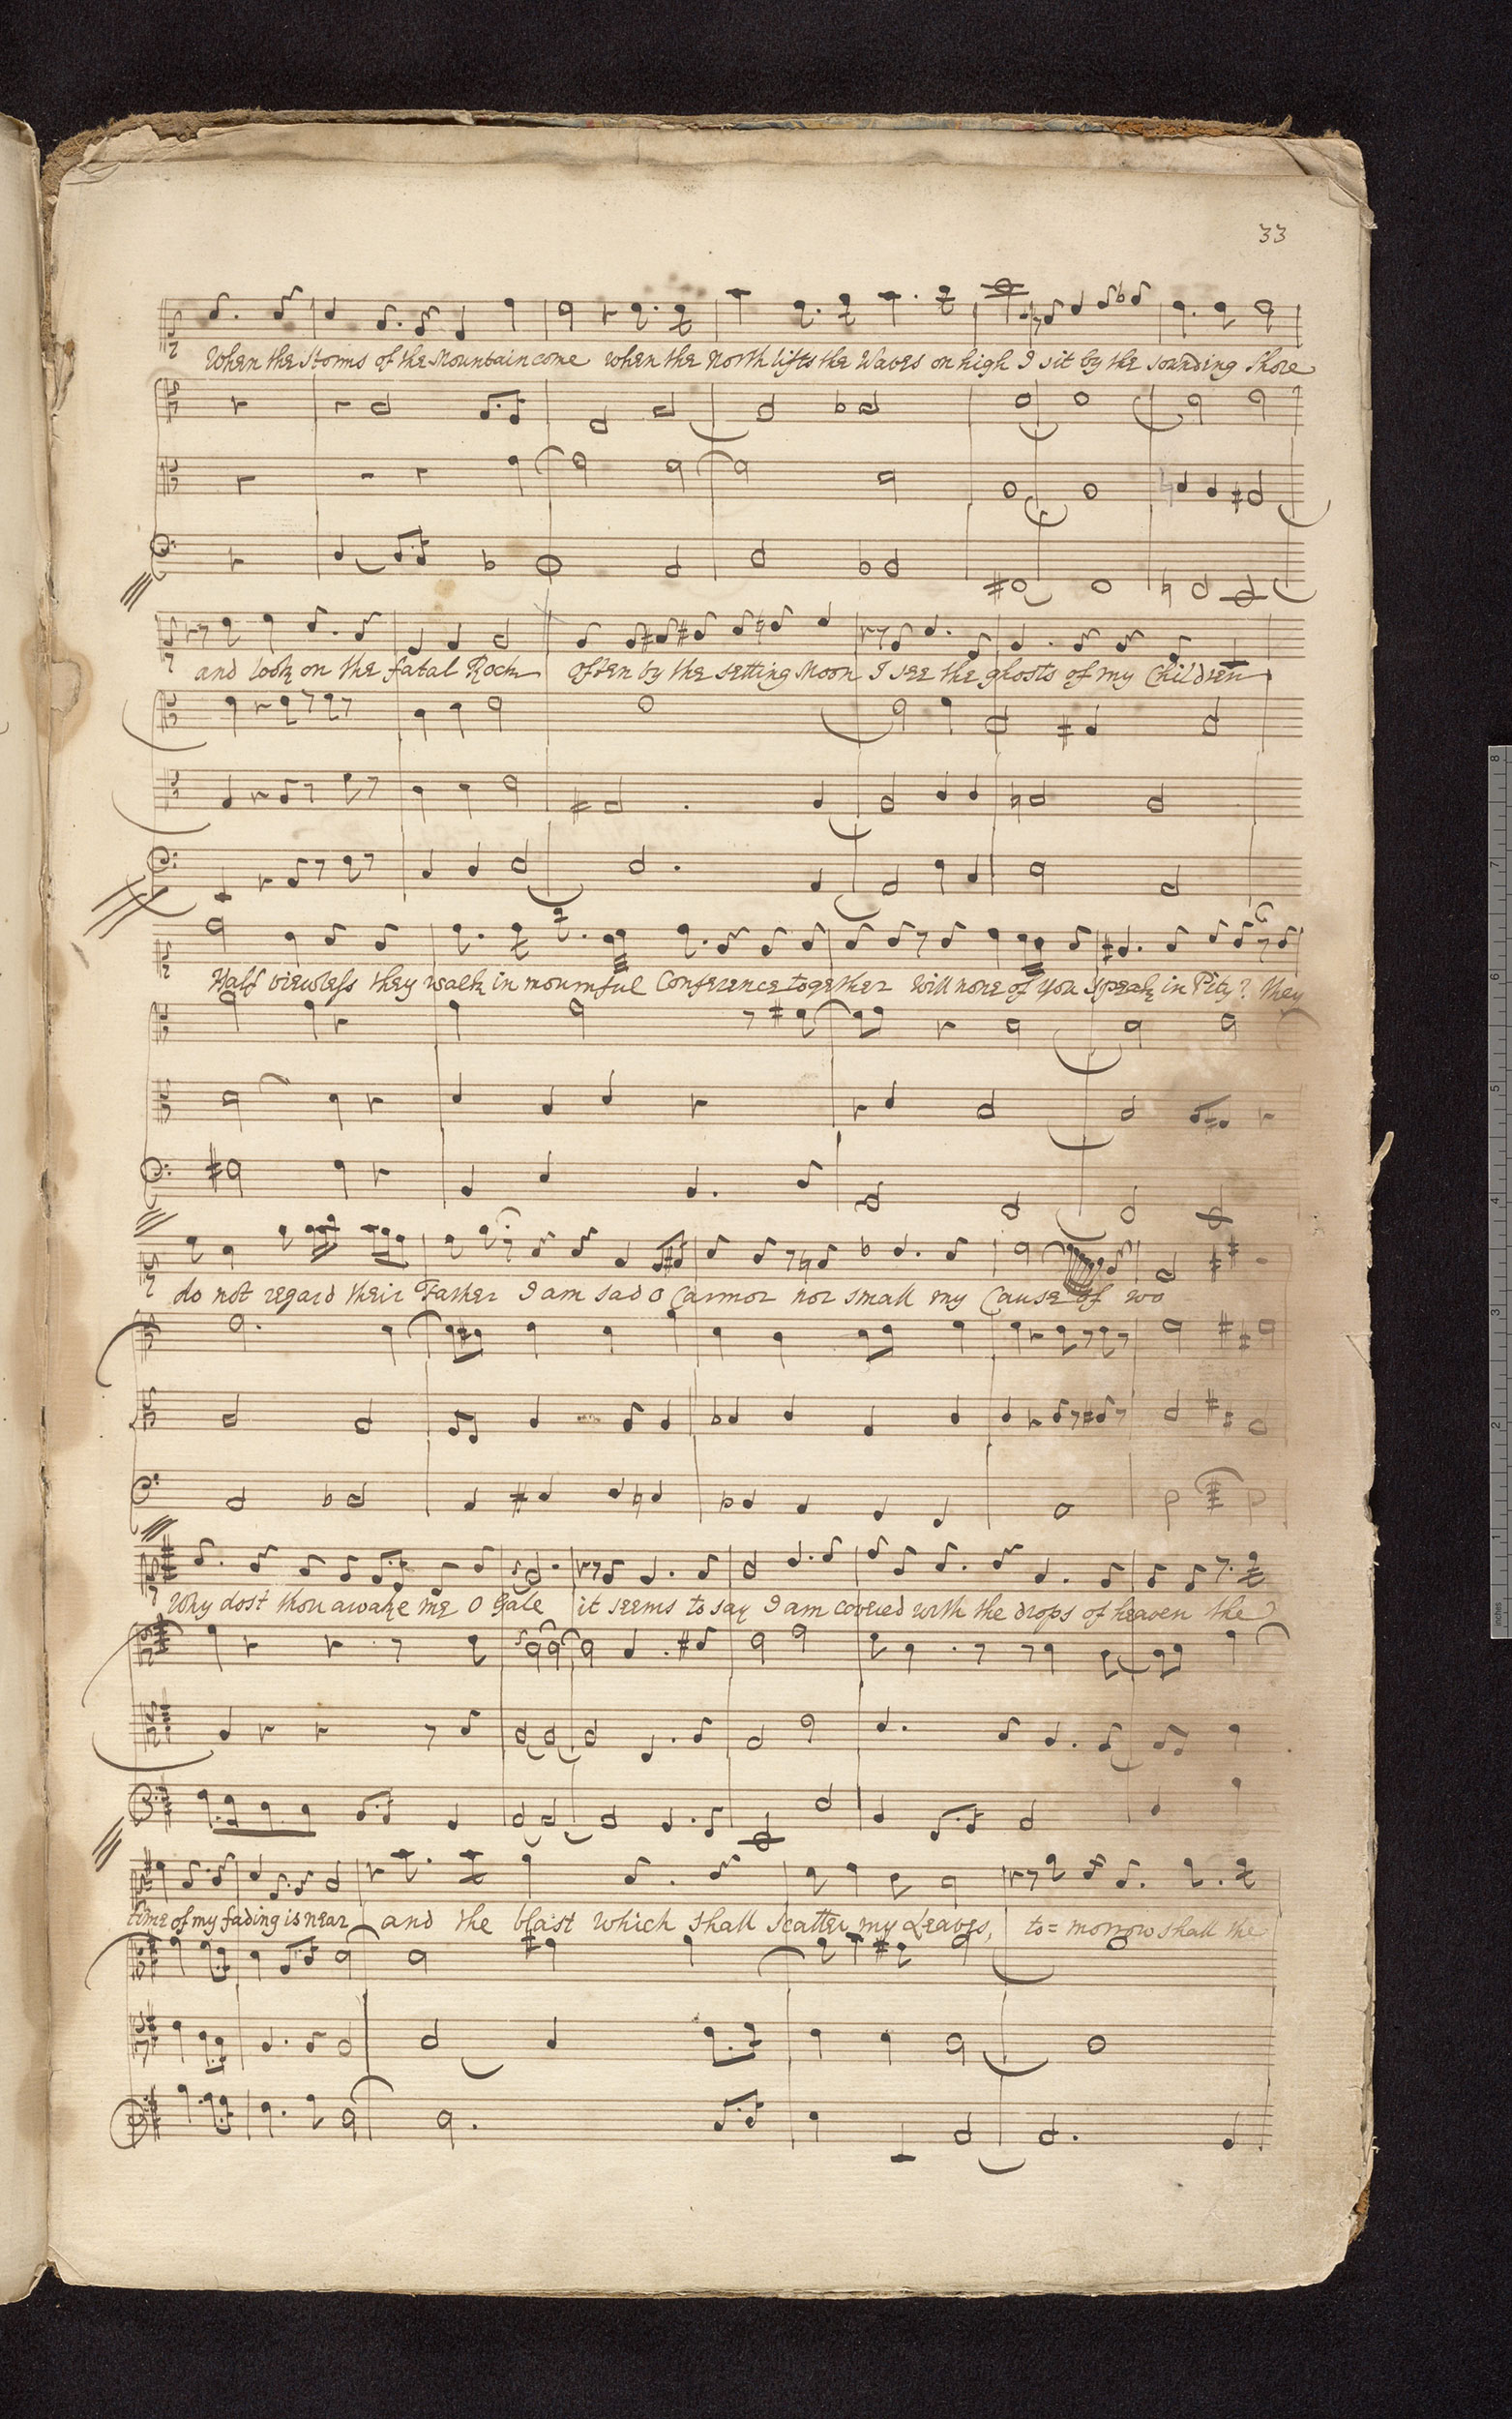 33
When the Storms of the Mountain come when the North lifts the Waves on high I sit by the sounding Shore
and look on the fatal Rock often by the setting Moon I see the ghosts of my Children
Half viewless they walk in mournful Conference together Will none of you speak in Pity? they
do not regard their Father I am sad O Carmor nor small my Cause of wo
Why dost thou awake me O Gale it seems to say I am covered with the drops of heaven the
time of my fading is near and the blast which shall scatter my Leaves, to=morrow shall the
inches 1 2 3 4 5 6 7 8